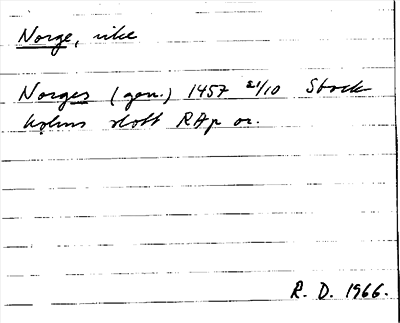 Norge, rike
Norges (gen.) 1457 21/10 Stock-
holms slott RAp or.
R. D. 1966.